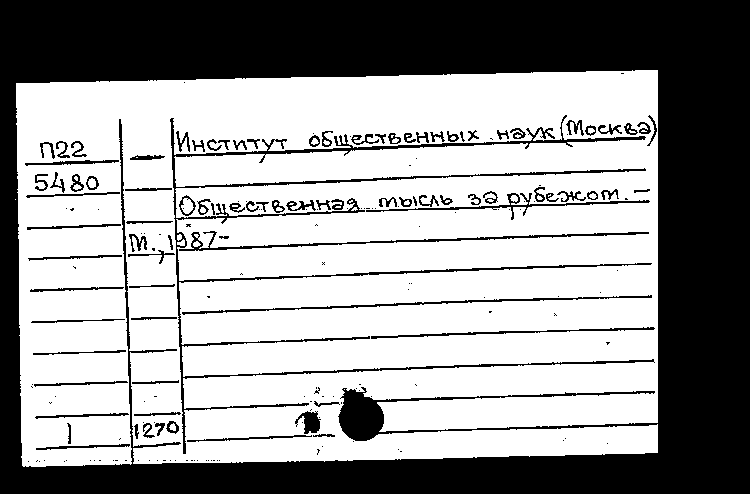 П22 — Институт общественных наук (Москва)
5480
Общественная мысль за рубежом. —
М., 1987-
1 1270